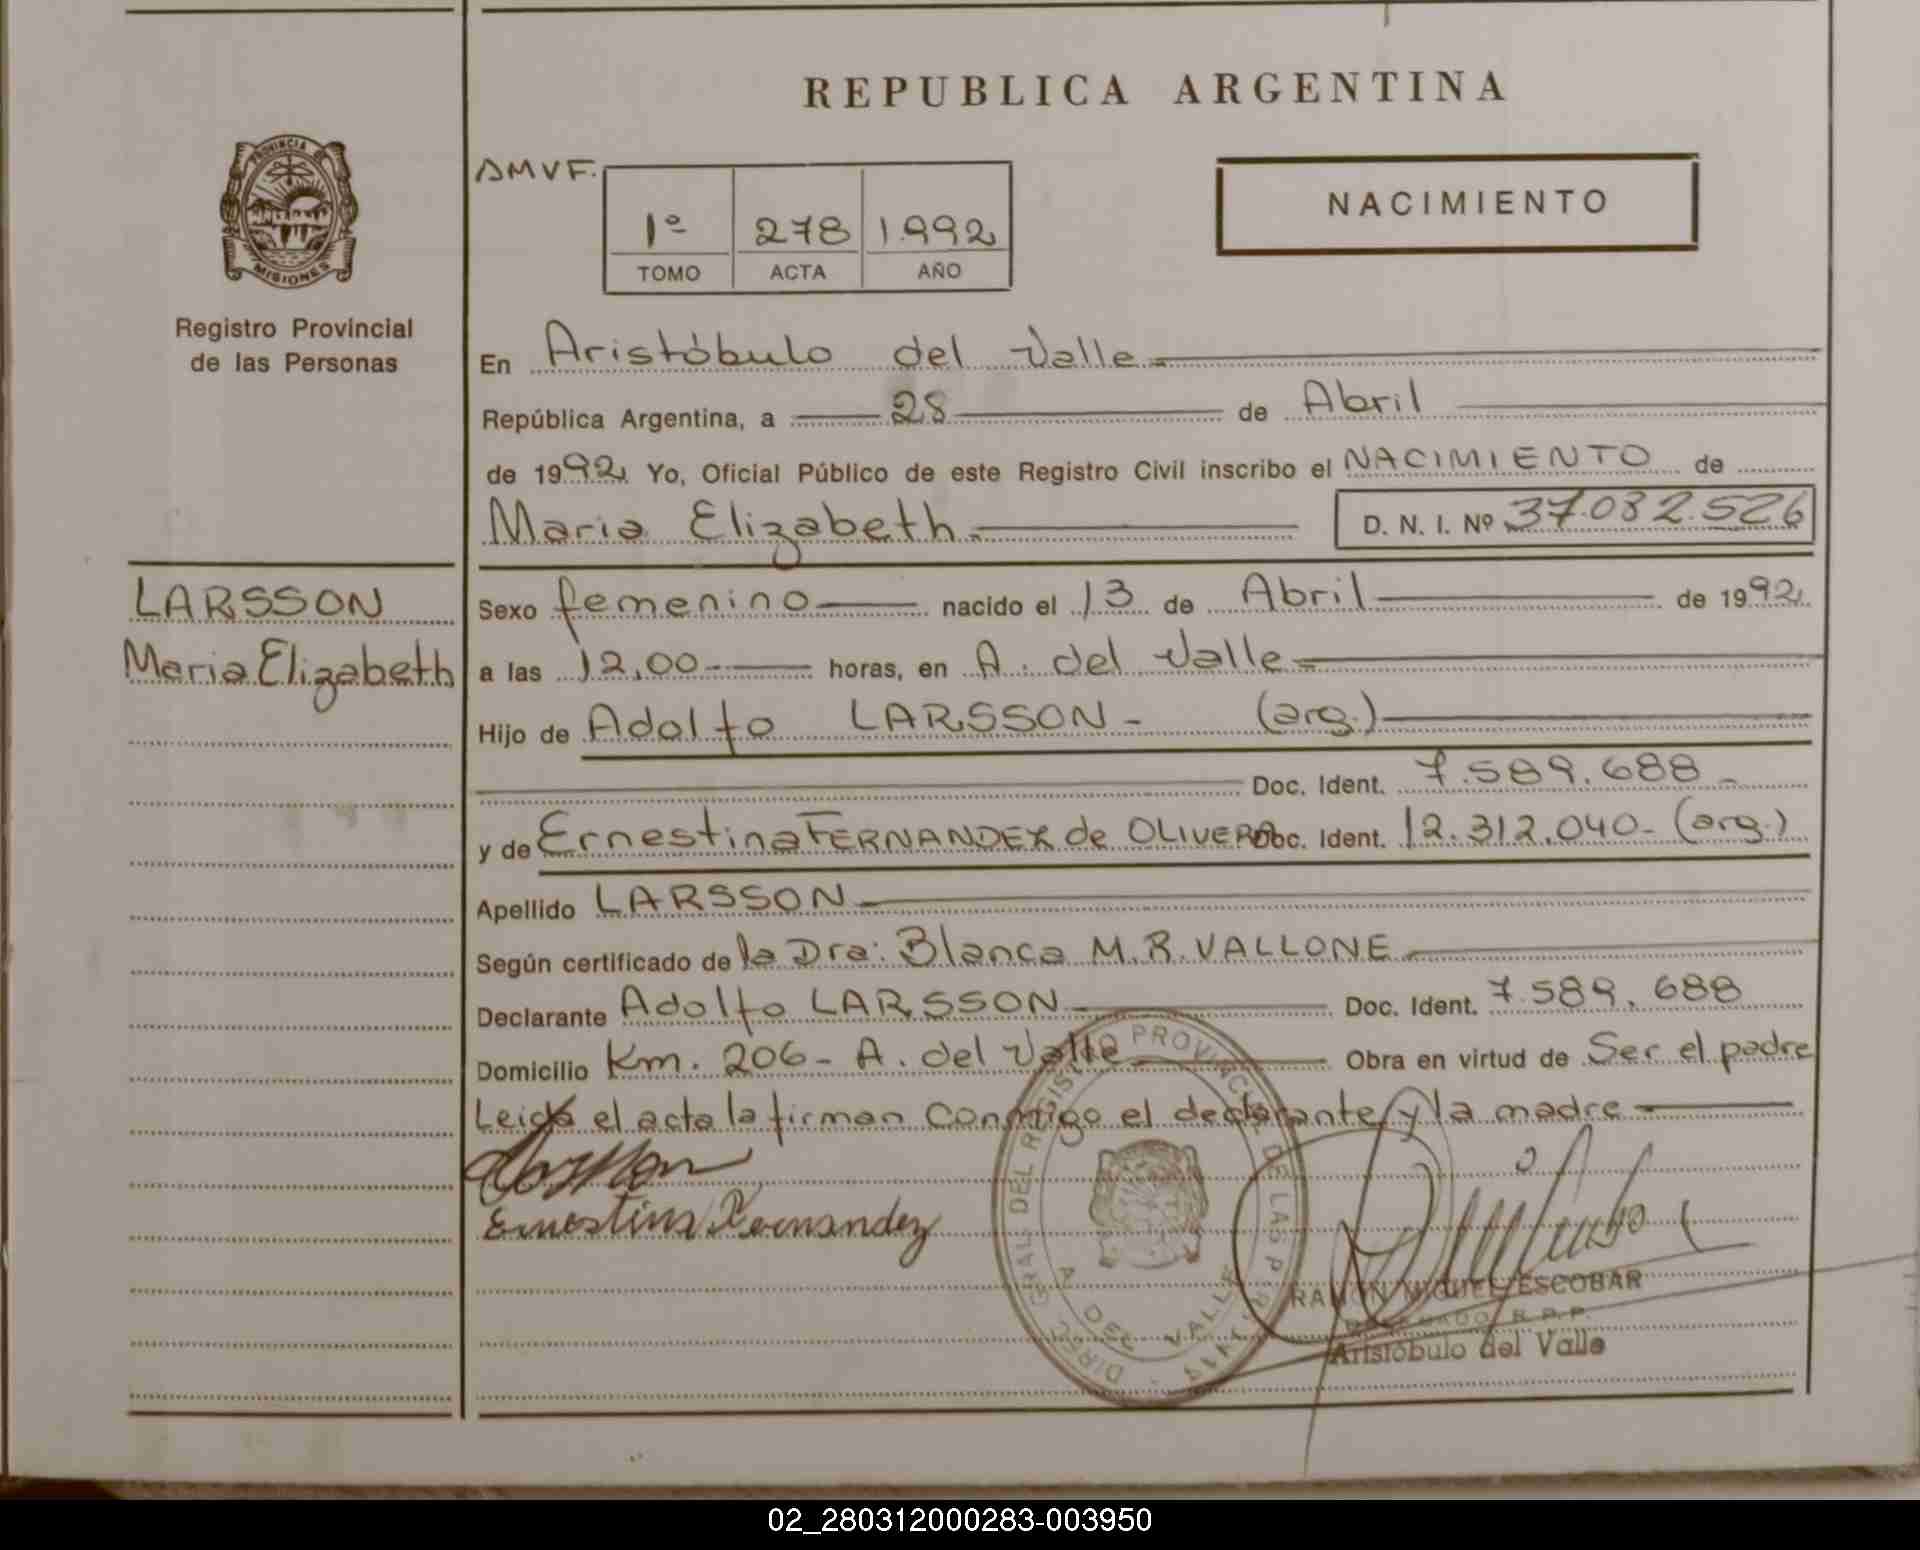 REPUBLICA ARGENTINA
PROVINCIA DE
MISIONES
Registro Provincial
de las Personas
AMVF.
1º 278 1.992
TOMO ACTA AÑO
NACIMIENTO
En Aristóbulo del Valle
República Argentina, a 28 de Abril
de 1992 Yo, Oficial Público de este Registro Civil inscribo el NACIMIENTO de
Maria Elizabeth D. N. I. Nº 37.082.526
LARSSON
Maria Elizabeth
Sexo femenino nacido el 13 de Abril de 1992
a las 12,00 horas, en A. del Valle
Hijo de Adolfo LARSSON - (arg.)
Doc. Ident. 7.589.688
y de Ernestina FERNANDEZ de OLIVERA Doc. Ident. 12.312.040- (arg.)
Apellido LARSSON
Según certificado de la Dra: Blanca M.R. VALLONE
Declarante Adolfo LARSSON Doc. Ident. 7.589.688
Domicilio Km. 206- A. del Valle Obra en virtud de Ser el padre
Leida el acta la firman conmigo el declarante y la madre
Larsson
Ernestina Fernandez
DEL REGISTRO PROVINCIAL DE LAS
A. DEL VALLE
RAMON MIGUEL ESCOBAR
R.P.P.
Aristóbulo del Valle
02_280312000283-003950